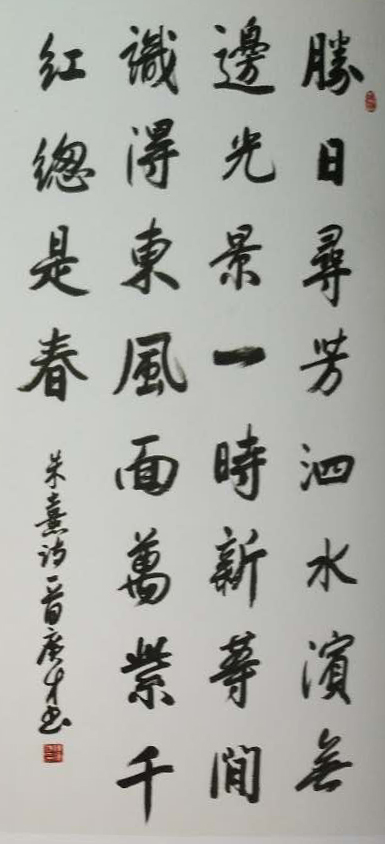 勝日尋芳泗水濱無
邊光景一時新等閒
識得東風面萬紫千
紅總是春
朱熹詩一首庚才书